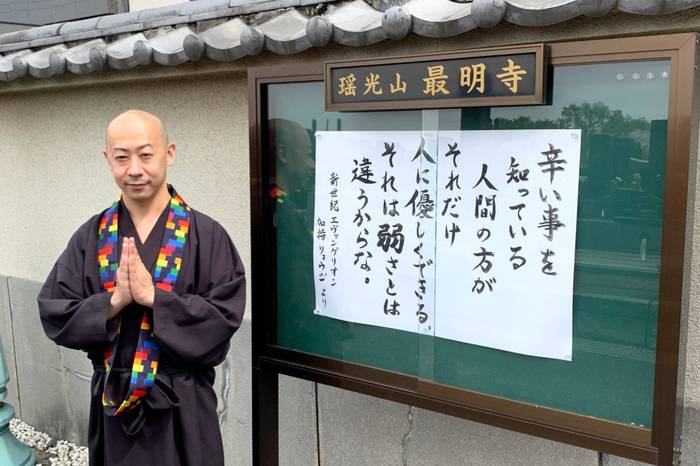 瑶光山 最明寺
辛い事を
知っている
人間の方が
それだけ
人に優しくできる。
それは弱さとは
違うからな。
新世紀エヴァンゲリオン
加持リョウジより